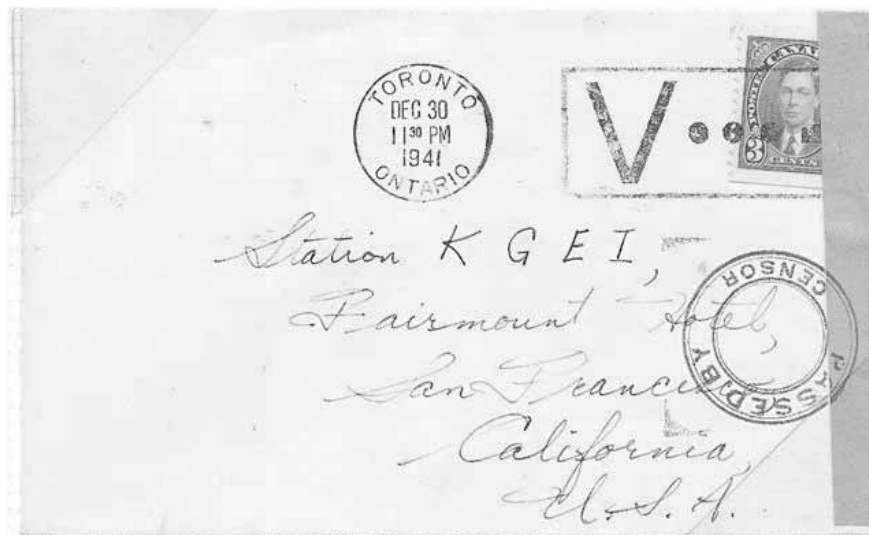 TORONTO
DEC 30
11³⁰ PM
1941
ONTARIO
V...
3
Station K G E I,
Fairmount Hotel,
San Francisco
California,
U.S.A.
PASSED BY
CENSOR